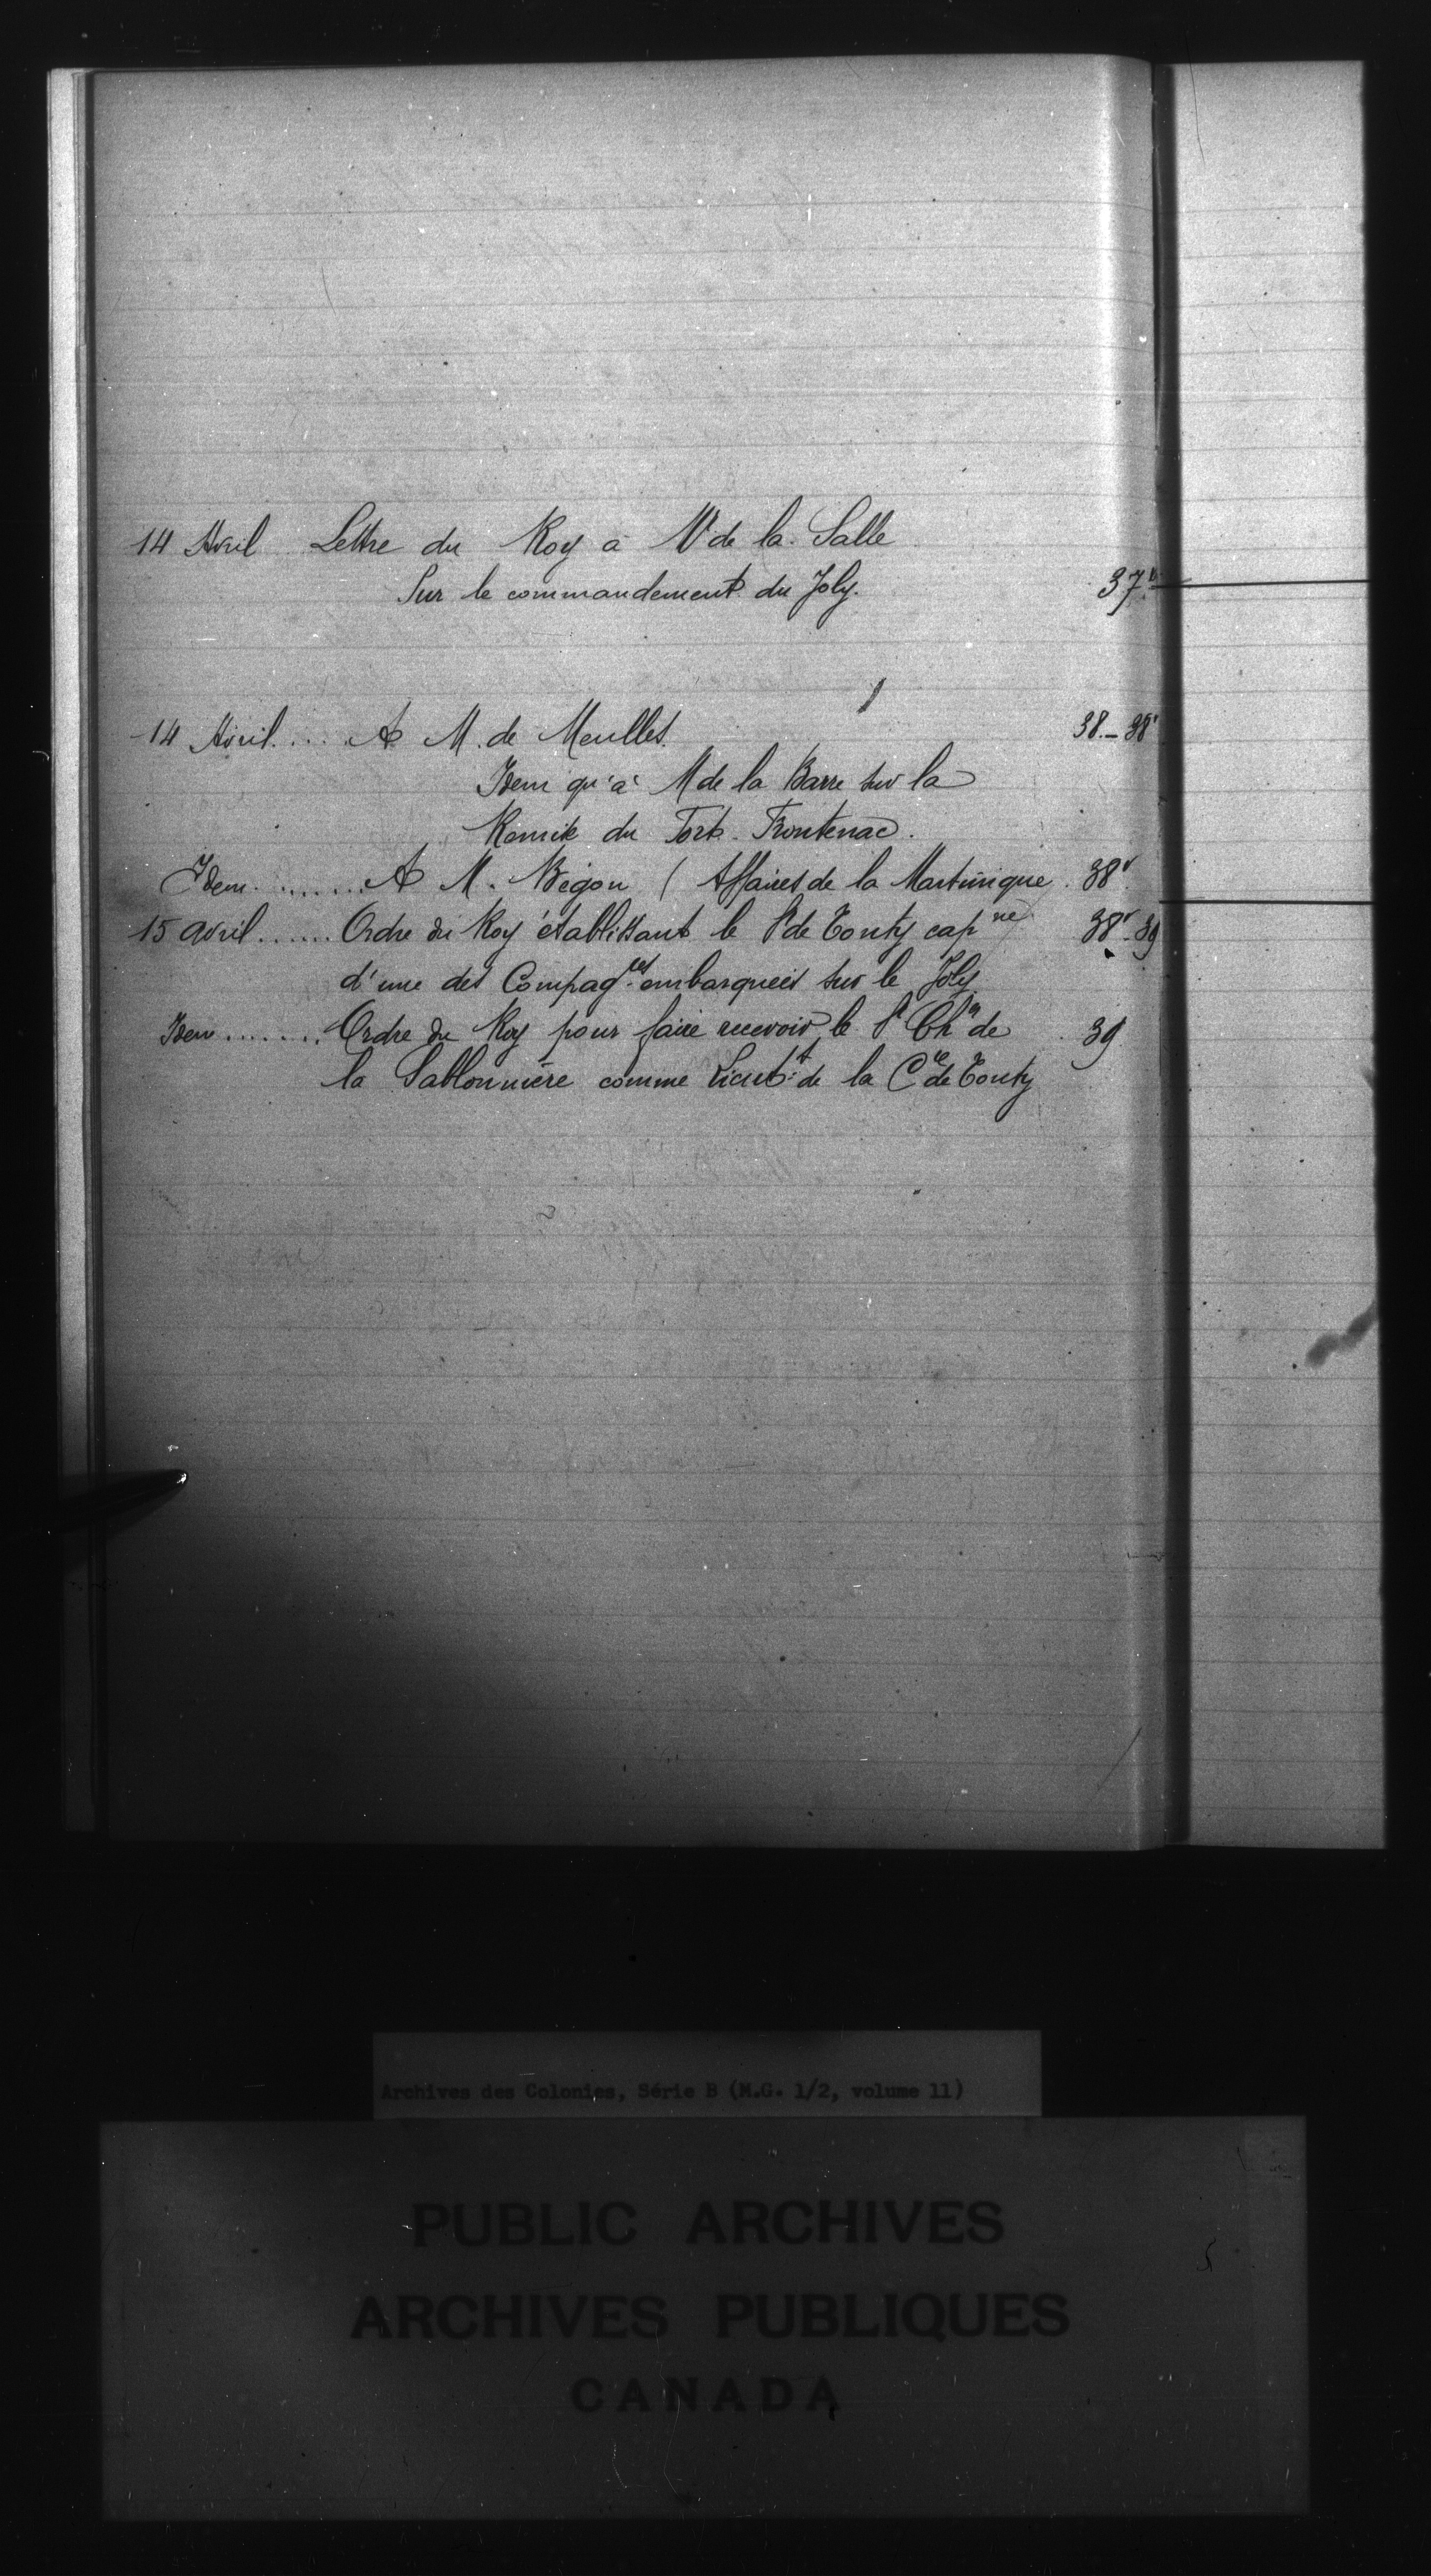 14 Avril Lettre du Roy à M de la Salle
Sur le commandement du Joly. 37v
14 Avril.... A M. de Meulles. 38.-38v
Idem qu'à M de la Barre sur la
Remise du Fort Frontenac.
Idem....... A M. Bégon ( Affaires de la Martinique. 38v
15 avril...... Ordre du Roy établissant le Sr de Tonty capne 38v-39
d'une des Compagies embarquées sur le Joly
Idem....... Ordre du Roy pour faire recevoir le Sr Chr de 39
la Sablonnière comme Lieutt de la Cie de Tonty
Archives des Colonies, Série B (M.G. 1/2, volume 11)
PUBLIC ARCHIVES
ARCHIVES PUBLIQUES
CANADA